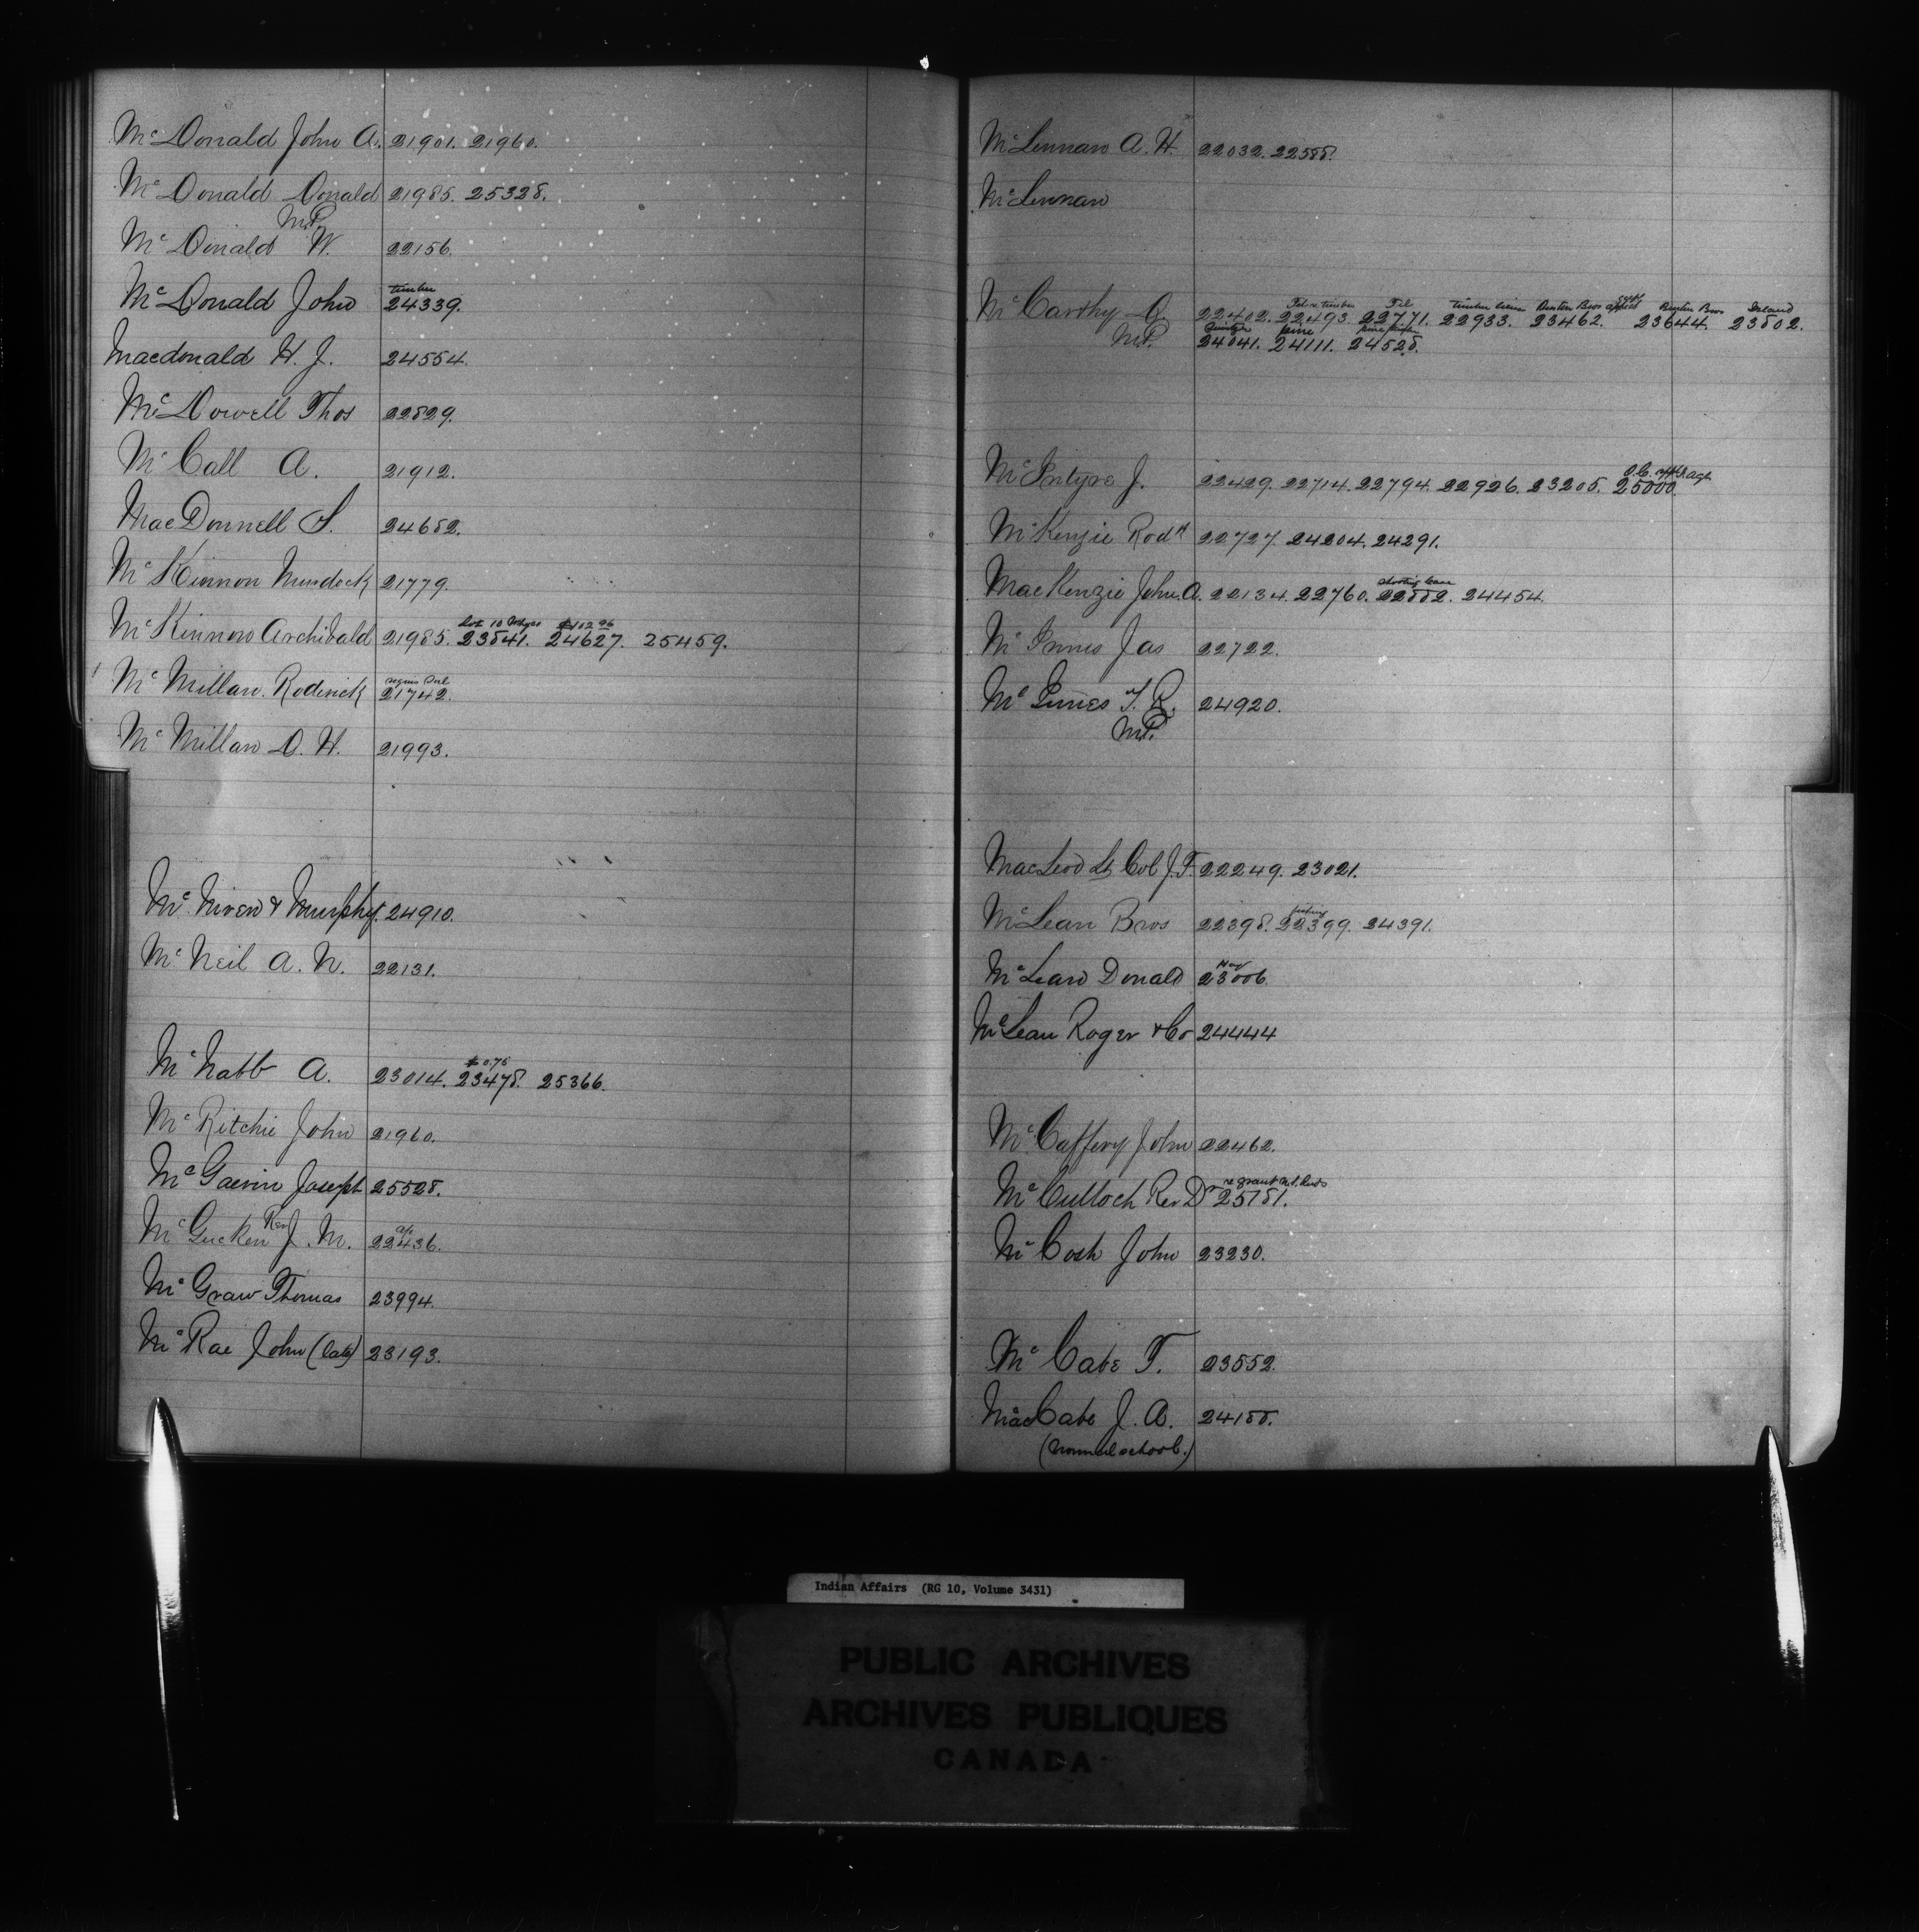 McDonald John A. 21901. 21960.
McDonald Donald 21985. 25328.
M.P.
McDonald W. 22156.
timber
McDonald John 24339.
Macdonald H. J. 24554.
McDowell Thos 22829.
McCall A. 21912.
MacDonnell S. 24682.
McKinnon Murdock 21779.
Lot 10 $102 96
McKinnon Archibald 21985. 23841. 24627. 25459.
McMillan Roderick 21742.
McMillan D. H. 21993.
McNiven & Murphy. 24910.
McNeil A. N. 22131.
McNabb A. 23014. 23478. 25366.
McRitchie John 21960.
McGavin Joseph 25528.
McGucken Rev J. M. 22436.
McGraw Thomas 23994.
McRae John (late) 23193.
McLennan A. H. 22032. 22588.
McLennan
timber timber Benton Bros Benton Bros Island
McCarthy D. 22402. 22493. 22771. 22933. 23462. 23644. 23802.
pine
M.P. 24041. 24111. 24528.
O.C.
McIntyre J. 22429. 22714. 22794. 22926. 23205. 25000.
McKenzie Rodk 22727. 24204. 24291.
shooting case
MacKenzie John A. 22134. 22760. 22882. 24454.
McInnis Jas 22722.
McInnes T. R. 24920.
M.P.
MacLeod Lt Col J. F. 22249. 23021.
fishing
McLean Bros 22398. 22399. 24391.
Hay
McLean Donald 23006.
McLean Roger & Co 24444
McCaffery John 22462.
re grant
McCulloch Rev Dr 25181.
McCosh John 23230.
McCabe T. 23552.
MacCabe J. A. 24188.
(normal school.)
Indian Affairs (RG 10, Volume 3431)
PUBLIC ARCHIVES
ARCHIVES PUBLIQUES
CANADA